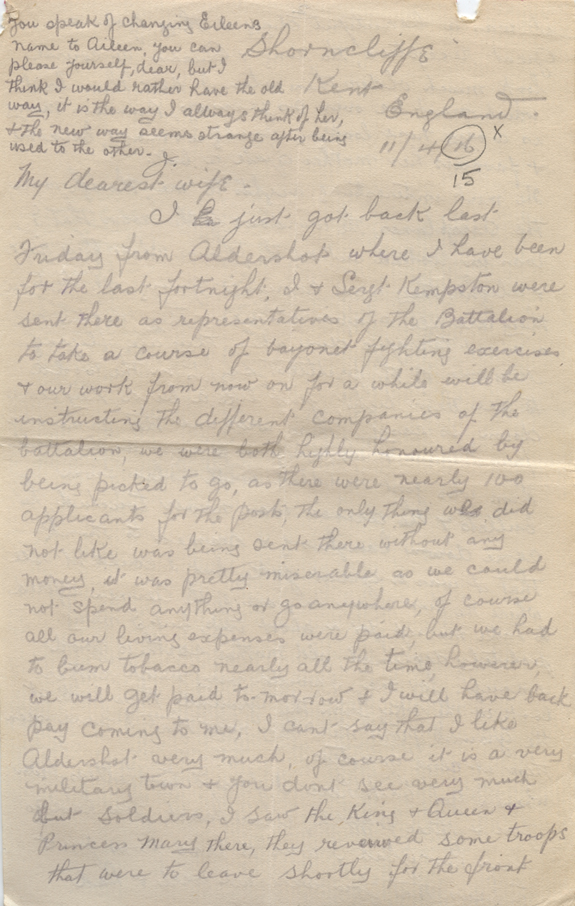 You speak of changing Eileens
name to Aileen, you can
please yourself, dear, but I
think I would rather have the old
way, it is the way I always think of her,
& the new way seems strange after being
used to the other. -
Shorncliffe
Kent
England.
11/4/16 x
15
My dearest wife -
I just got back last
Friday from Aldershot where I have been
for the last fortnight, I & Sergt Kempston were
sent there as representatives of the Battalion
to take a course of bayonet fighting exercises
& our work from now on for a while will be
instructing the different companies of the
battalion, we were both highly honoured by
being picked to go, as there were nearly 100
applicants for the post, the only thing we did
not like was being sent there without any
money, it was pretty miserable as we could
not spend anything or go anywhere, of course
all our living expenses were paid, but we had
to bum tobacco nearly all the time, however,
we will get paid to-morrow & I will have back
pay coming to me, I cant say that I like
Aldershot very much, of course it is a very
military town & you dont see very much
but soldiers, I saw the King & Queen &
Princess Mary there, they reviewed some troops
that were to leave shortly for the front